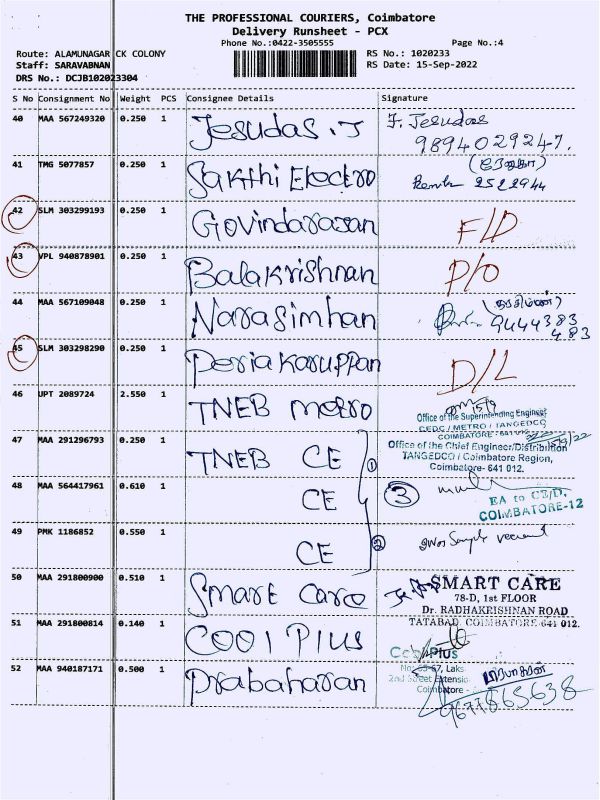 THE PROFESSIONAL COURIERS, Coimbatore
Delivery Runsheet - PCX
Phone No.:0422-3505555
Page No.:4
Route: ALAMUNAGAR CK COLONY
RS No.: 1020233
Staff: SARAVABNAN
RS Date: 15-Sep-2022
DRS No.: DCJB102023304
S No Consignment No Weight PCS Consignee Details Signature
40 MAA 567249320 0.250 1 Jesudas . J J. Jesudas
9894029247.
41 TMG 5077857 0.250 1 Sakthi Electro 2522944
42 SLM 303299193 0.250 1 Govindarasan F/D
43 VPL 940878901 0.250 1 Balakrishnan P/O
44 MAA 567109048 0.250 1 Narasimhan 9444383
483
45 SLM 303298290 0.250 1 Periakaruppan D/L
46 UPT 2089724 2.550 1 TNEB metro
Office of the Superintending Engineer
CEDC / METRO / TANGEDCO
COIMBATORE - 641 012
47 MAA 291296793 0.250 1 TNEB CE
Office of the Chief Engineer/Distribution
TANGEDCO / Coimbatore Region,
Coimbatore- 641 012.
①
48 MAA 564417961 0.610 1 CE ③
EA to CE/D.
COIMBATORE-12
49 PMK 1186852 0.550 1 CE ②
50 MAA 291800900 0.510 1 Smart Care
SMART CARE
78-D, 1st FLOOR
Dr. RADHAKRISHNAN ROAD
TATABAD, COIMBATORE-641 012.
51 MAA 291800814 0.140 1 COOl Plus
Cool Plus
No: 65-67, Laks
2nd Street Extensio
Coimbatore -
52 MAA 940187171 0.500 1 Prabaharan
9677865638